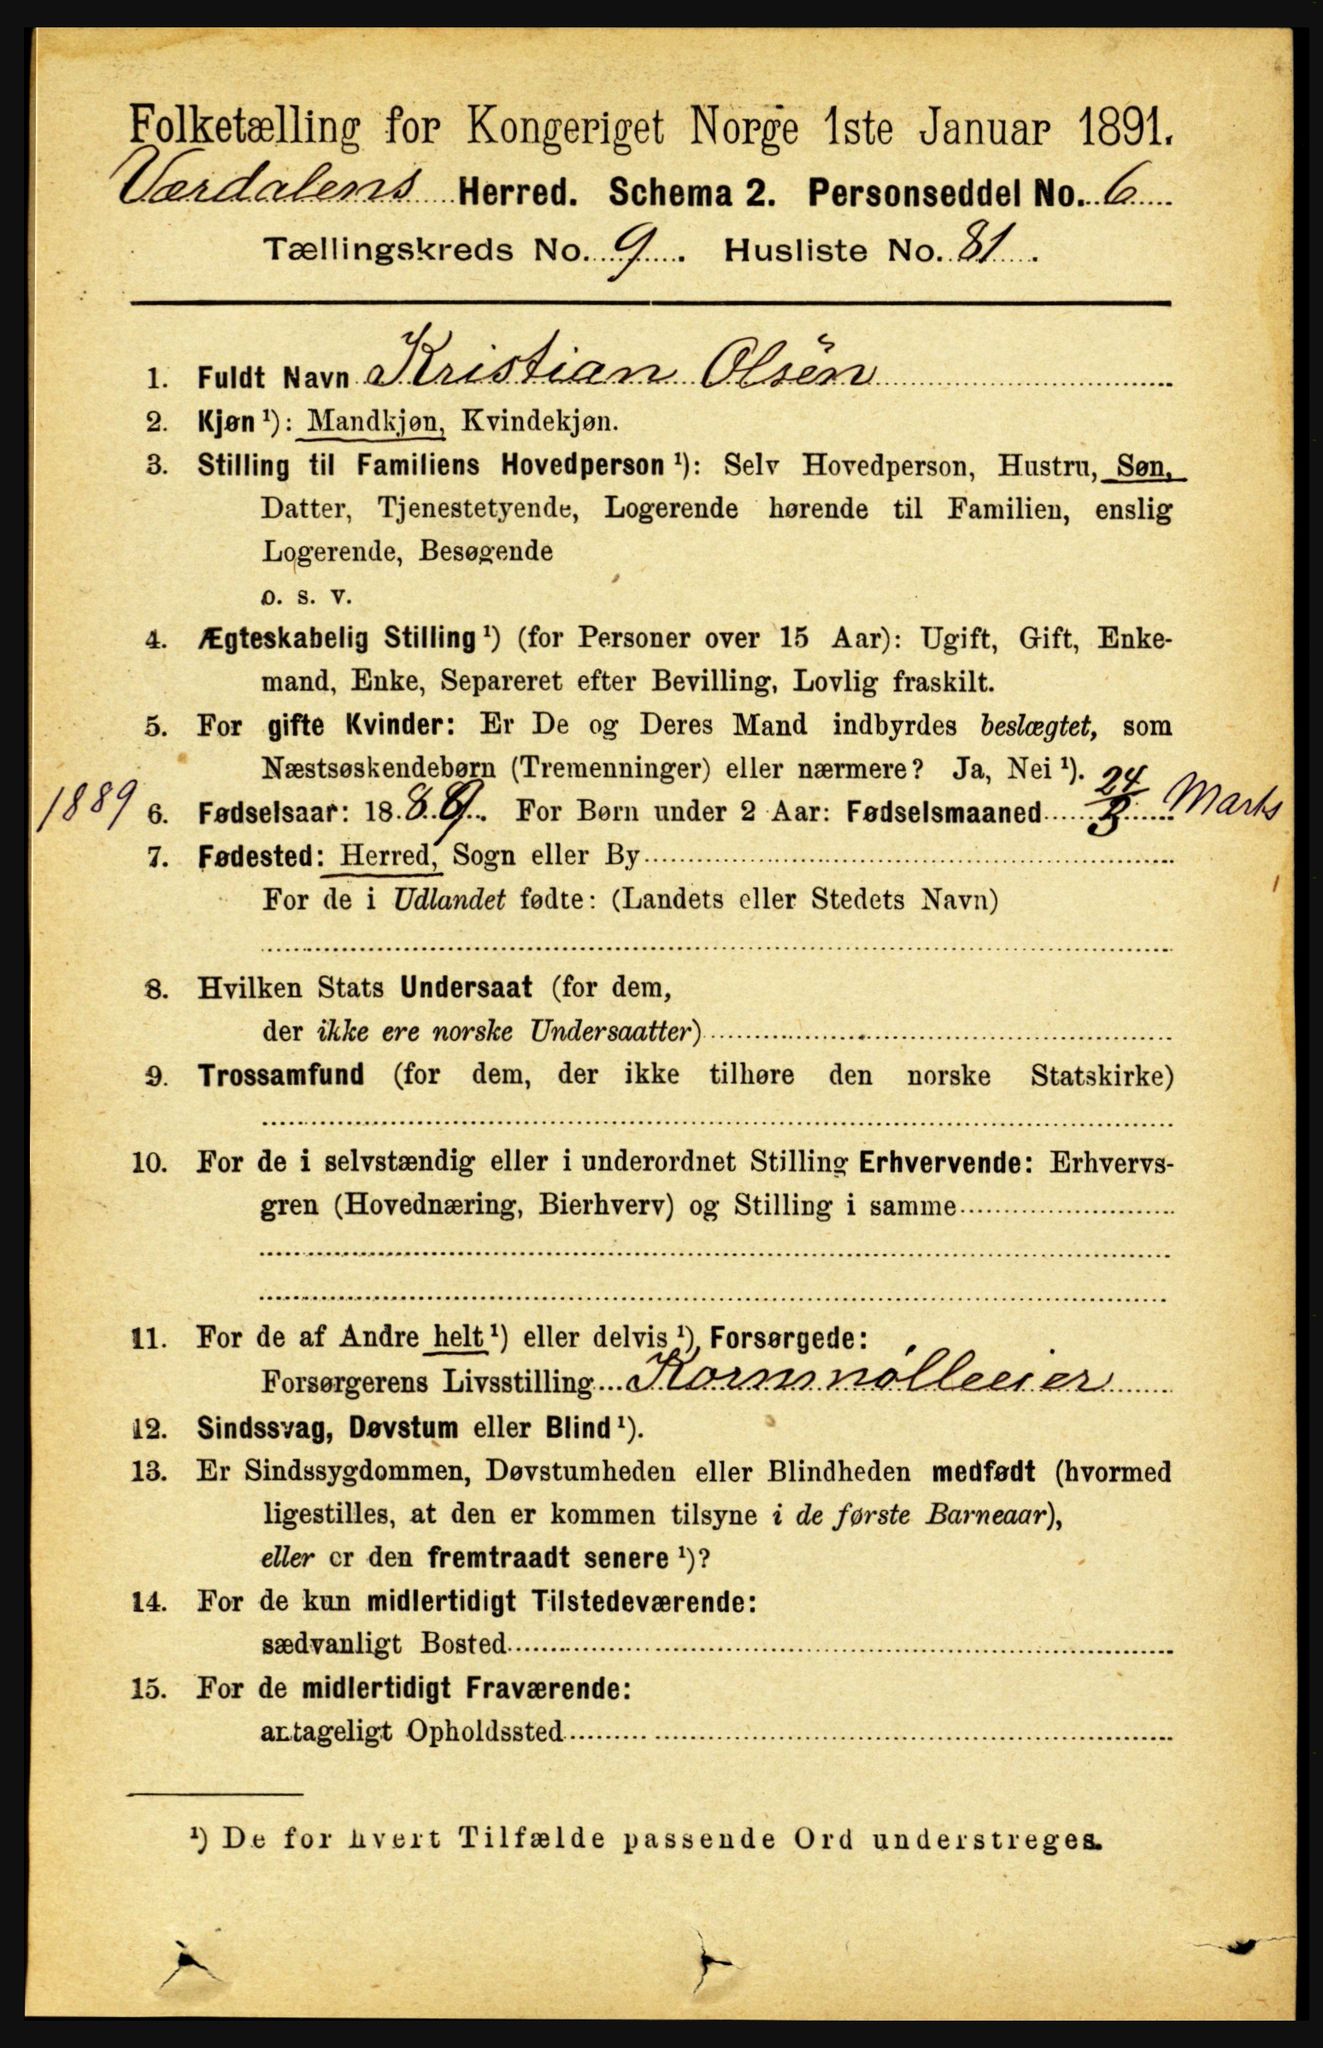 Folketælling for Kongeriget Norge 1ste Januar 1891.
Værdalens Herred. Schema 2. Personseddel No. 6
Tællingskreds No. 9. Husliste No. 81.
1. Fuldt Navn Kristian Olsen
2. Kjøn ¹): Mandkjøn, Kvindekjøn.
3. Stilling til Familiens Hovedperson ¹): Selv Hovedperson, Hustru, Søn,
Datter, Tjenestetyende, Logerende hørende til Familien, enslig
Logerende, Besøgende
o. s. v.
4. Ægteskabelig Stilling ¹) (for Personer over 15 Aar): Ugift, Gift, Enke-
mand, Enke, Separeret efter Bevilling, Lovlig fraskilt.
5. For gifte Kvinder: Er De og Deres Mand indbyrdes beslægtet, som
Næstsøskendebørn (Tremenninger) eller nærmere? Ja, Nei ¹).
1889 6. Fødselsaar: 1889. For Børn under 2 Aar: Fødselsmaaned 24/3 Marts
7. Fødested: Herred, Sogn eller By
For de i Udlandet fødte: (Landets eller Stedets Navn)
8. Hvilken Stats Undersaat (for dem,
der ikke ere norske Undersaatter)
9. Trossamfund (for dem, der ikke tilhøre den norske Statskirke)
10. For de i selvstændig eller i underordnet Stilling Erhvervende: Erhvervs-
gren (Hovednæring, Bierhverv) og Stilling i samme
11. For de af Andre helt ¹) eller delvis ¹) Forsørgede:
Forsørgerens Livsstilling Kornmølleeier
12. Sindssvag, Døvstum eller Blind ¹).
13. Er Sindssygdommen, Døvstumheden eller Blindheden medfødt (hvormed
ligestilles, at den er kommen tilsyne i de første Barneaar),
eller er den fremtraadt senere ¹)?
14. For de kun midlertidigt Tilstedeværende:
sædvanligt Bosted
15. For de midlertidigt Fraværende:
antageligt Opholdssted
¹) De for hvert Tilfælde passende Ord understreges.